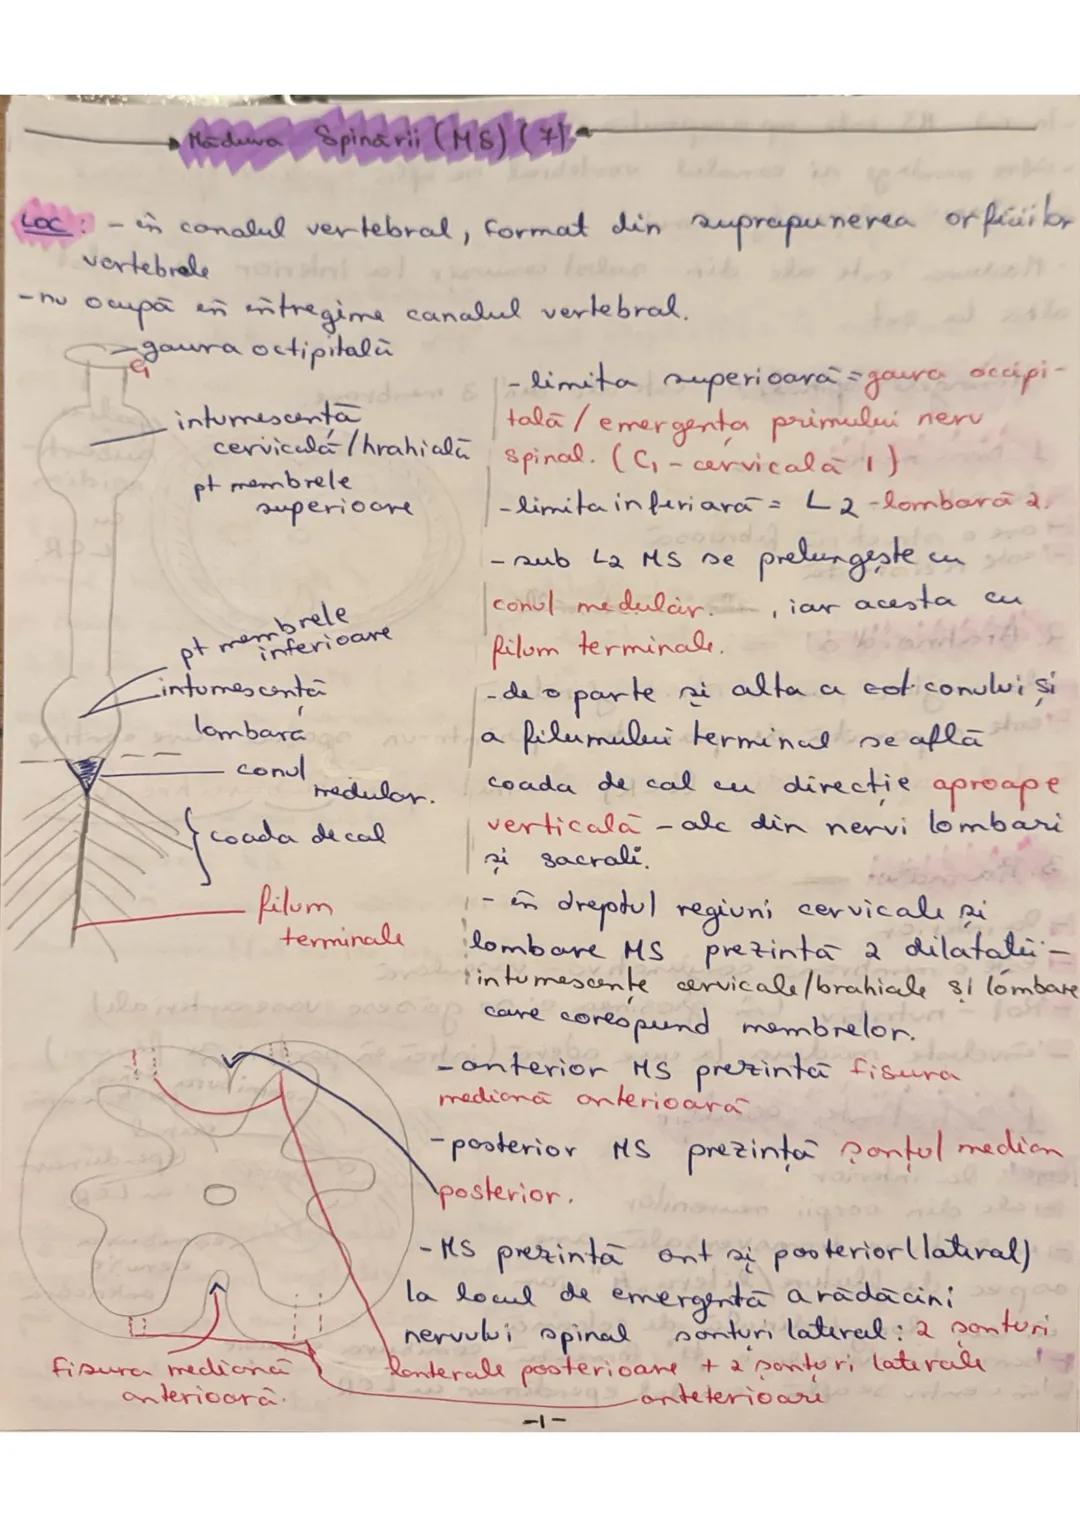 Măduva Spinării (MS) (7)
Loc: - în canalul vertebral, format din suprapunerea orficiilor
vertebrale
- nu ocupă în întregime canalul vertebral.
gaura octipitală
C1
- limita superioară = gaura occipi-
tală / emergența primului nerv
spinal. (C1 - cervicală 1)
- limita inferiară = L2 - lombară 2.
- sub L2 MS se prelungește cu
conul medular. , iar acesta cu
filum terminale.
- de o parte și alta a cot conului și
a filumului terminal se află
coada de cal cu direcție aproape
verticală - alc din nervi lombari
și sacrali.
- în dreptul regiuni cervicale și
lombare MS prezintă 2 dilatații -
intumescențe cervicale/brahiale și lombare
care corespund membrelor.
intumescență
cervicală/brahială
pt membrele
superioare
pt membrele
inferioare
intumescență
lombară
conul
medular.
coada de cal
filum
terminale
- anterior MS prezintă fisura
mediană anterioară
- posterior MS prezintă șanțul median
posterior.
- MS prezintă ant și posterior (lateral)
la locul de emergență a rădăcini
nervului spinal șanturi lateral: 2 șanturi
lanterale posterioare + 2 șanțuri laterale
anteterioari
fisura mediană
anterioară.
-1-